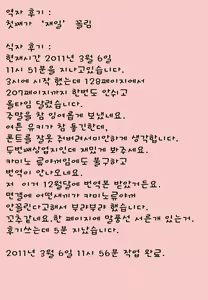 역자 후기 :
첫빠가 '재일' 꼴림
식자 후기 :
현재시간 2011년 3월 6일
11시 51분을 지나고있습니다.
3시에 시작 했는데 128페이지에서
207페이지까지 한번도 안쉬고
올타임 달렸습니다.
주말을 참 잉여롭게 보냈네요.
여튼 유키가 참 돋긴한데.
폰트를 잘못 주버려서미안하게 생각합니다.
두번째상업지인데 재밌게 봐주세요.
카미노 류야꺼임에도 불구하고
번역이 안나오네요.
저 이거 12월달에 번역본 받았거든요.
먼결에 어떤새끼가 카미노류야꺼
안꼴린다고해서 부랴부랴 했습니다.
꼬릿같네요.한 페이지에 말풍선 서른개 있는거.
후기쓰는데 5분 지났습니다.
2011년 3월 6일 11시 56분 작업 완료.